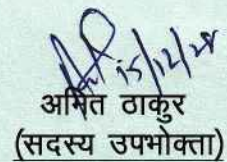 15/12/28
अमित ठाकुर
(सदस्य उपभोक्ता)